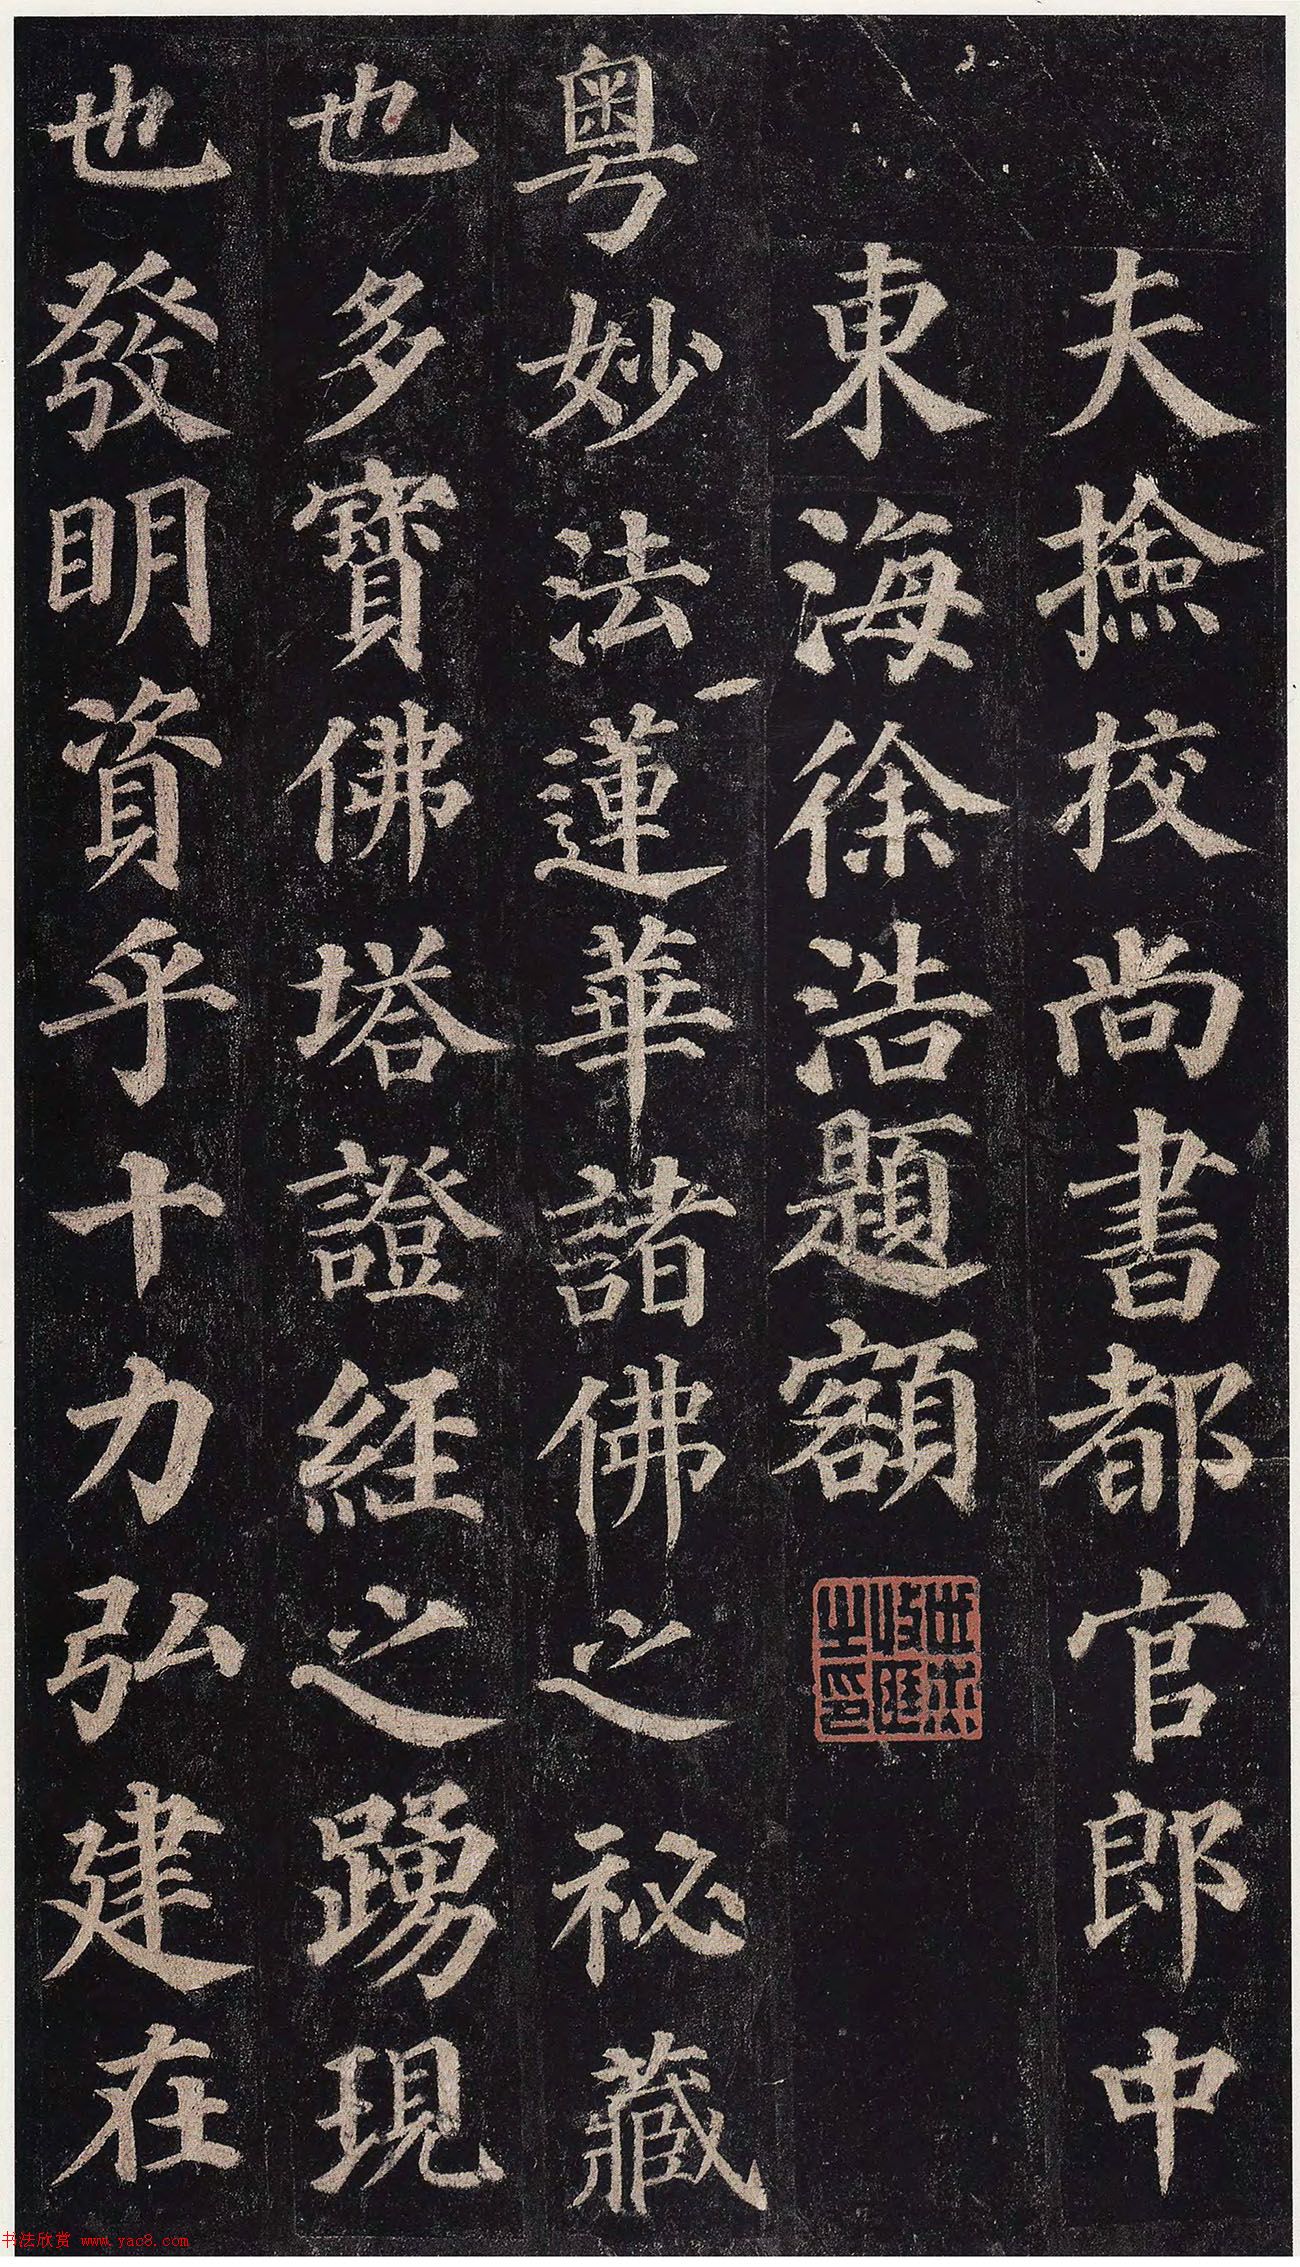 夫撿挍尚書都官郎中
東海徐浩題額
粵妙法蓮華諸佛之祕藏
也多寶佛塔證經之踴現
也發明資乎十力弘建在
书法欣赏 www.yac8.com